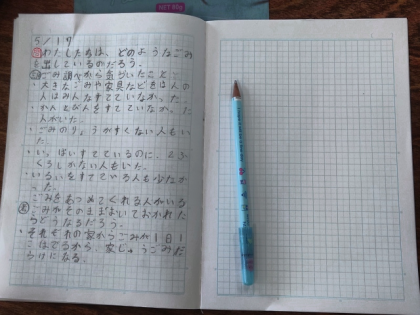 NET 80g
5/17
わたしたちは、どのようなごみ
を出しているのだろう。
ごみ調べから気づいたこと
・大きなごみや家具などをほ人の
人はみんなすてていなかった。
人がいた。
・ごみのりょうがすくない人もい
た。
・いっぱいすてているのに、2ふ
くろしかない人もいた。
・いるいをすてている人も少なか
った。
ごみをあつめてくれる人がいる
ごみがそのままおいておかれた
らどうなるだろう。
・それぞれの家からごみが1日1
こはでるから、家じゅうごみだ
らけになる。